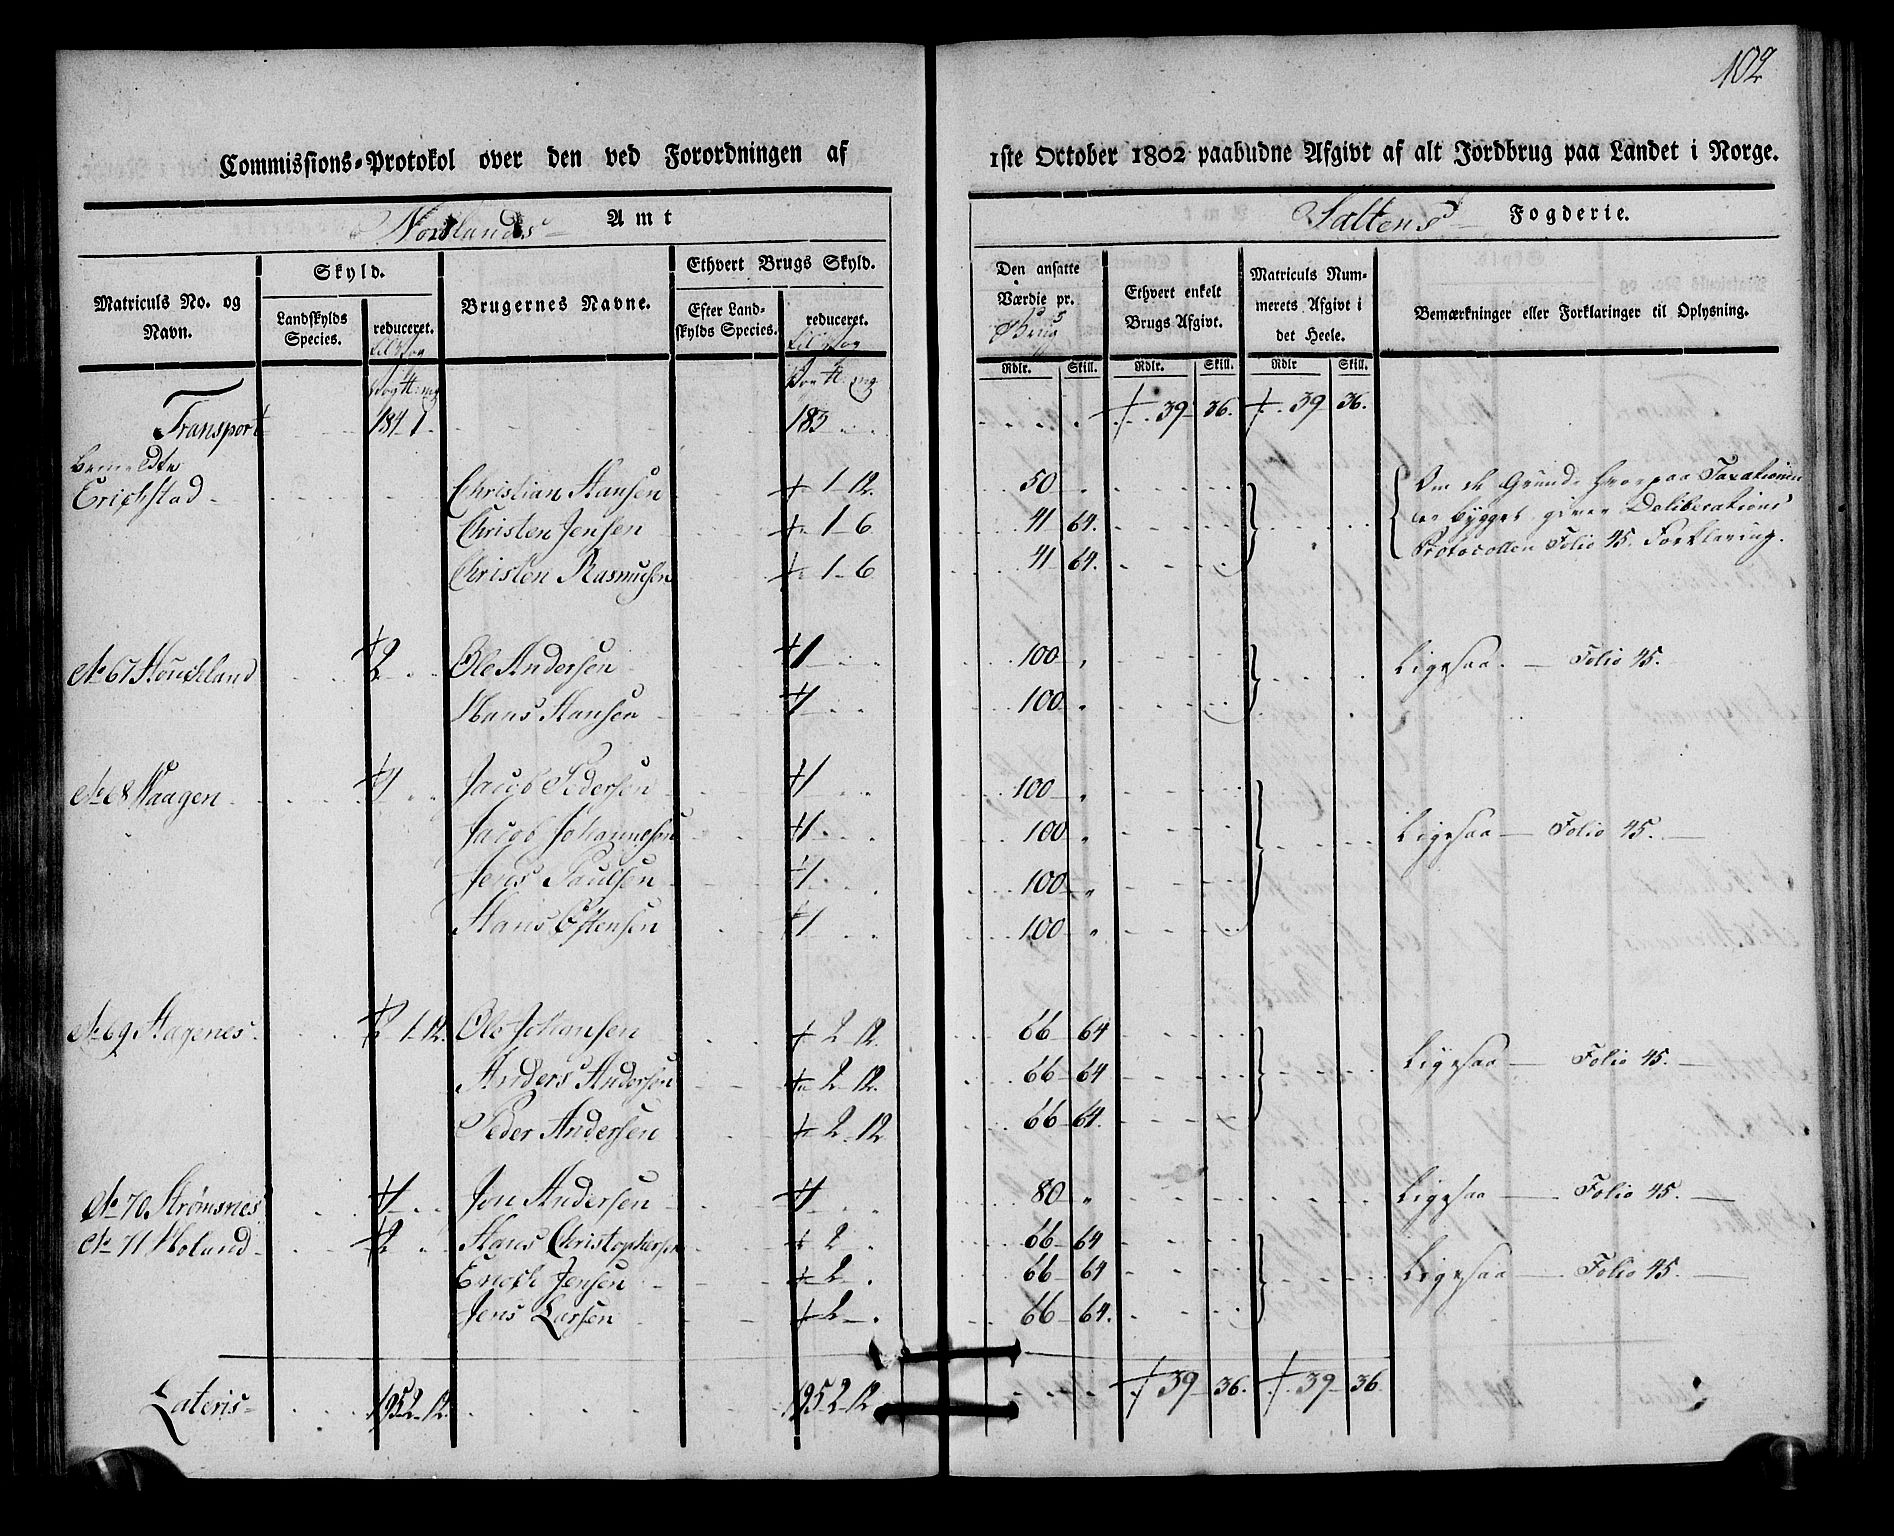 102
Commissions-Protokol over den ved Forordningen af 1ste October 1802 paabudne Afgivt af alt Jordbrug paa Landet i Norge.
Nordlands Amt Saltens Fogderie.
Matriculs No. og Navn.
Skyld.
Landskylds Species.
reduceret.
Brugernes Navne.
Ethvert Brugs Skyld.
Efter Landskylds Species.
reduceret.
Den ansatte Værdie pr. Brug
Ethvert enkelt Brugs Afgivt.
Matriculs Nummerets Afgivt i det Heele.
Bemærkninger eller Forklaringer til Oplysning.
Rdlr. Skill. Rdlr. Skill. Rdlr Skill.
Transport 184 1 183 39 36. 39 36.
bemeldte
Erichstad Christian Hansen 1 12. 50 Om de Grunde hvorpaa Taxationen
Christen Jensen 1 6 41 64. er bygget giver Deliberations
Christen Rasmusen 1 6 41 64. Protocollen Folio 45. Forklaring.
No 67 2 Ole Andersen 1 100 Ligesaa Folio 45.
Hans Hansen 1 100
No 68 Vaagen 4 Jacob Pedersen 1 100
Jacob Johannesen 1 100 Ligesaa Folio 45.
Jens Paulsen 1 100
Hans Østensen 1 100
No 69 Hagenes 2 1 12. Ole Johansen 2 12. 66 64
Anders Andersen 2 12. 66 64 Ligesaa Folio 45.
Peder Andersen 2 12 66 64.
No 70 Strømsnes 1 Jon Andersen 1 80 Ligesaa Folio 45.
No 71 Moland 2 Hans Christophersen 2 66 64
Enoch Jensen 2 66 64 Ligesaa Folio 45.
Jens Larsen 2 66 64.
Lateris 195 2 12. 195 2 12. 39 36. 39 36